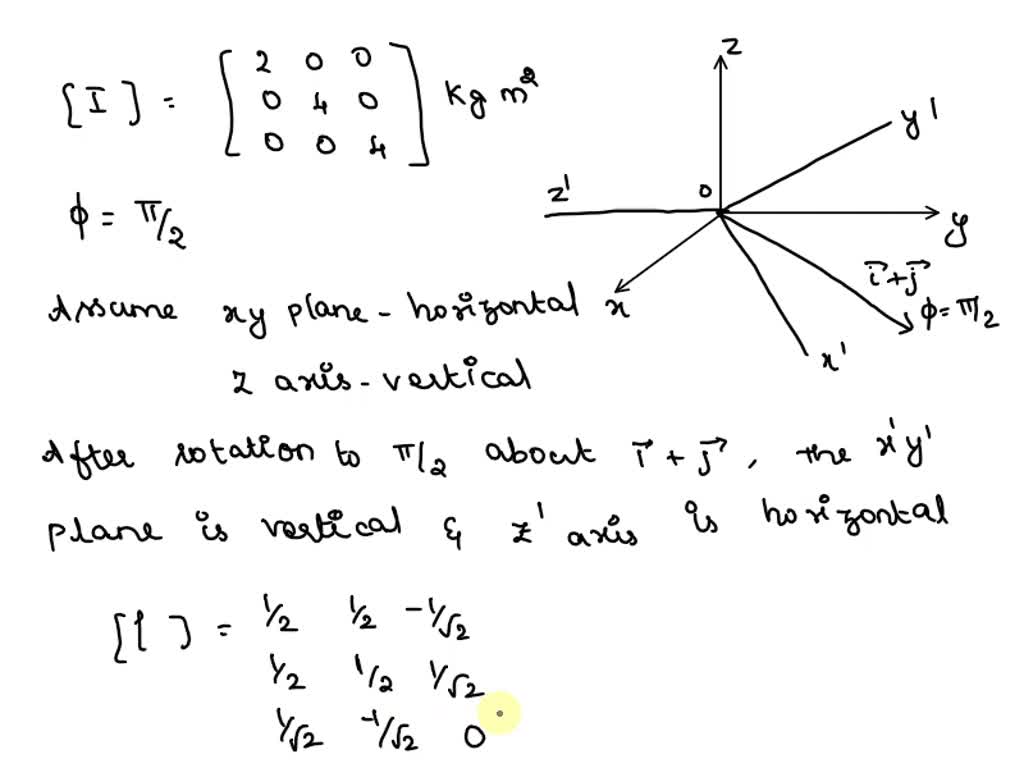 [I] = [ 2 0 0
0 4 0
0 0 4 ] kg m²
ϕ = π/2
z
y'
z'
o
y
i⃗+j⃗
ϕ=π/2
x
x'
Assume xy plane - horizontal
z axis - vertical
After rotation to π/2 about i⃗ + j⃗, the x'y'
plane is vertical & z' axis is horizontal
[l] = 1/2 1/2 -1/√2
1/2 1/2 1/√2
1/√2 -1/√2 0